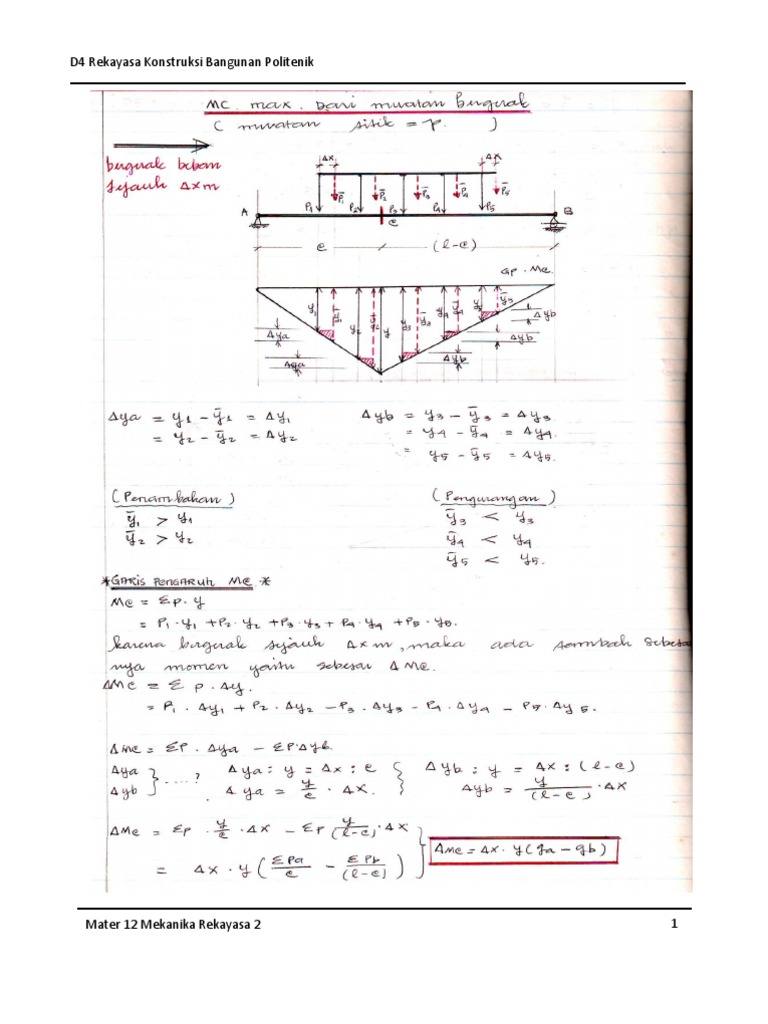 D4 Rekayasa Konstruksi Bangunan Politenik
MC. max. Dari muatan bergerak
( muatan titik = P. )
bergerak beban
sejauh Δx m
Δx Δx
P1 P̄1 P2 P̄2 P3 P̄3 P4 P̄4 P5 P̄5
A B
c
c (l-c)
GP. Mc.
y1 ȳ1 y2 ȳ2 y y3 ȳ3 y4 ȳ4 y5 ȳ5
Δya Δyb
Δya Δyb Δyb
Δya = y1 - ȳ1 = Δy1 Δyb = y3 - ȳ3 = Δy3
= y2 - ȳ2 = Δy2 = y4 - ȳ4 = Δy4.
= y5 - ȳ5 = Δy5.
(Penambahan) (Pengurangan)
ȳ1 > y1 ȳ3 < y3
ȳ2 > y2 ȳ4 < y4
ȳ5 < y5.
*GARIS PENGARUH Mc*
Mc = Σp.y
= P1.y1 + P2.y2 + P3.y3 + P4.y4 + P5.y5.
karena bergerak sejauh Δx m, maka ada
nya momen yaitu sebesar ΔMc.
ΔMc = Σ p.Δy.
= P1.Δy1 + P2.Δy2 - P3.Δy3 - P4.Δy4 - P5.Δy5.
ΔMc = ΣP.Δya - ΣP.Δyb.
Δya } ....? Δya : y = Δx : c Δyb : y = Δx : (l-c)
Δyb Δya = y/c . Δx. Δyb = y/(l-c) . Δx
ΔMc = Σp . y/c . Δx - Σp y/(l-c) . Δx
= Δx . y ( ΣPa/c - ΣPb/(l-c) ) ΔMc = Δx. y (qa - qb)
Mater 12 Mekanika Rekayasa 2 1